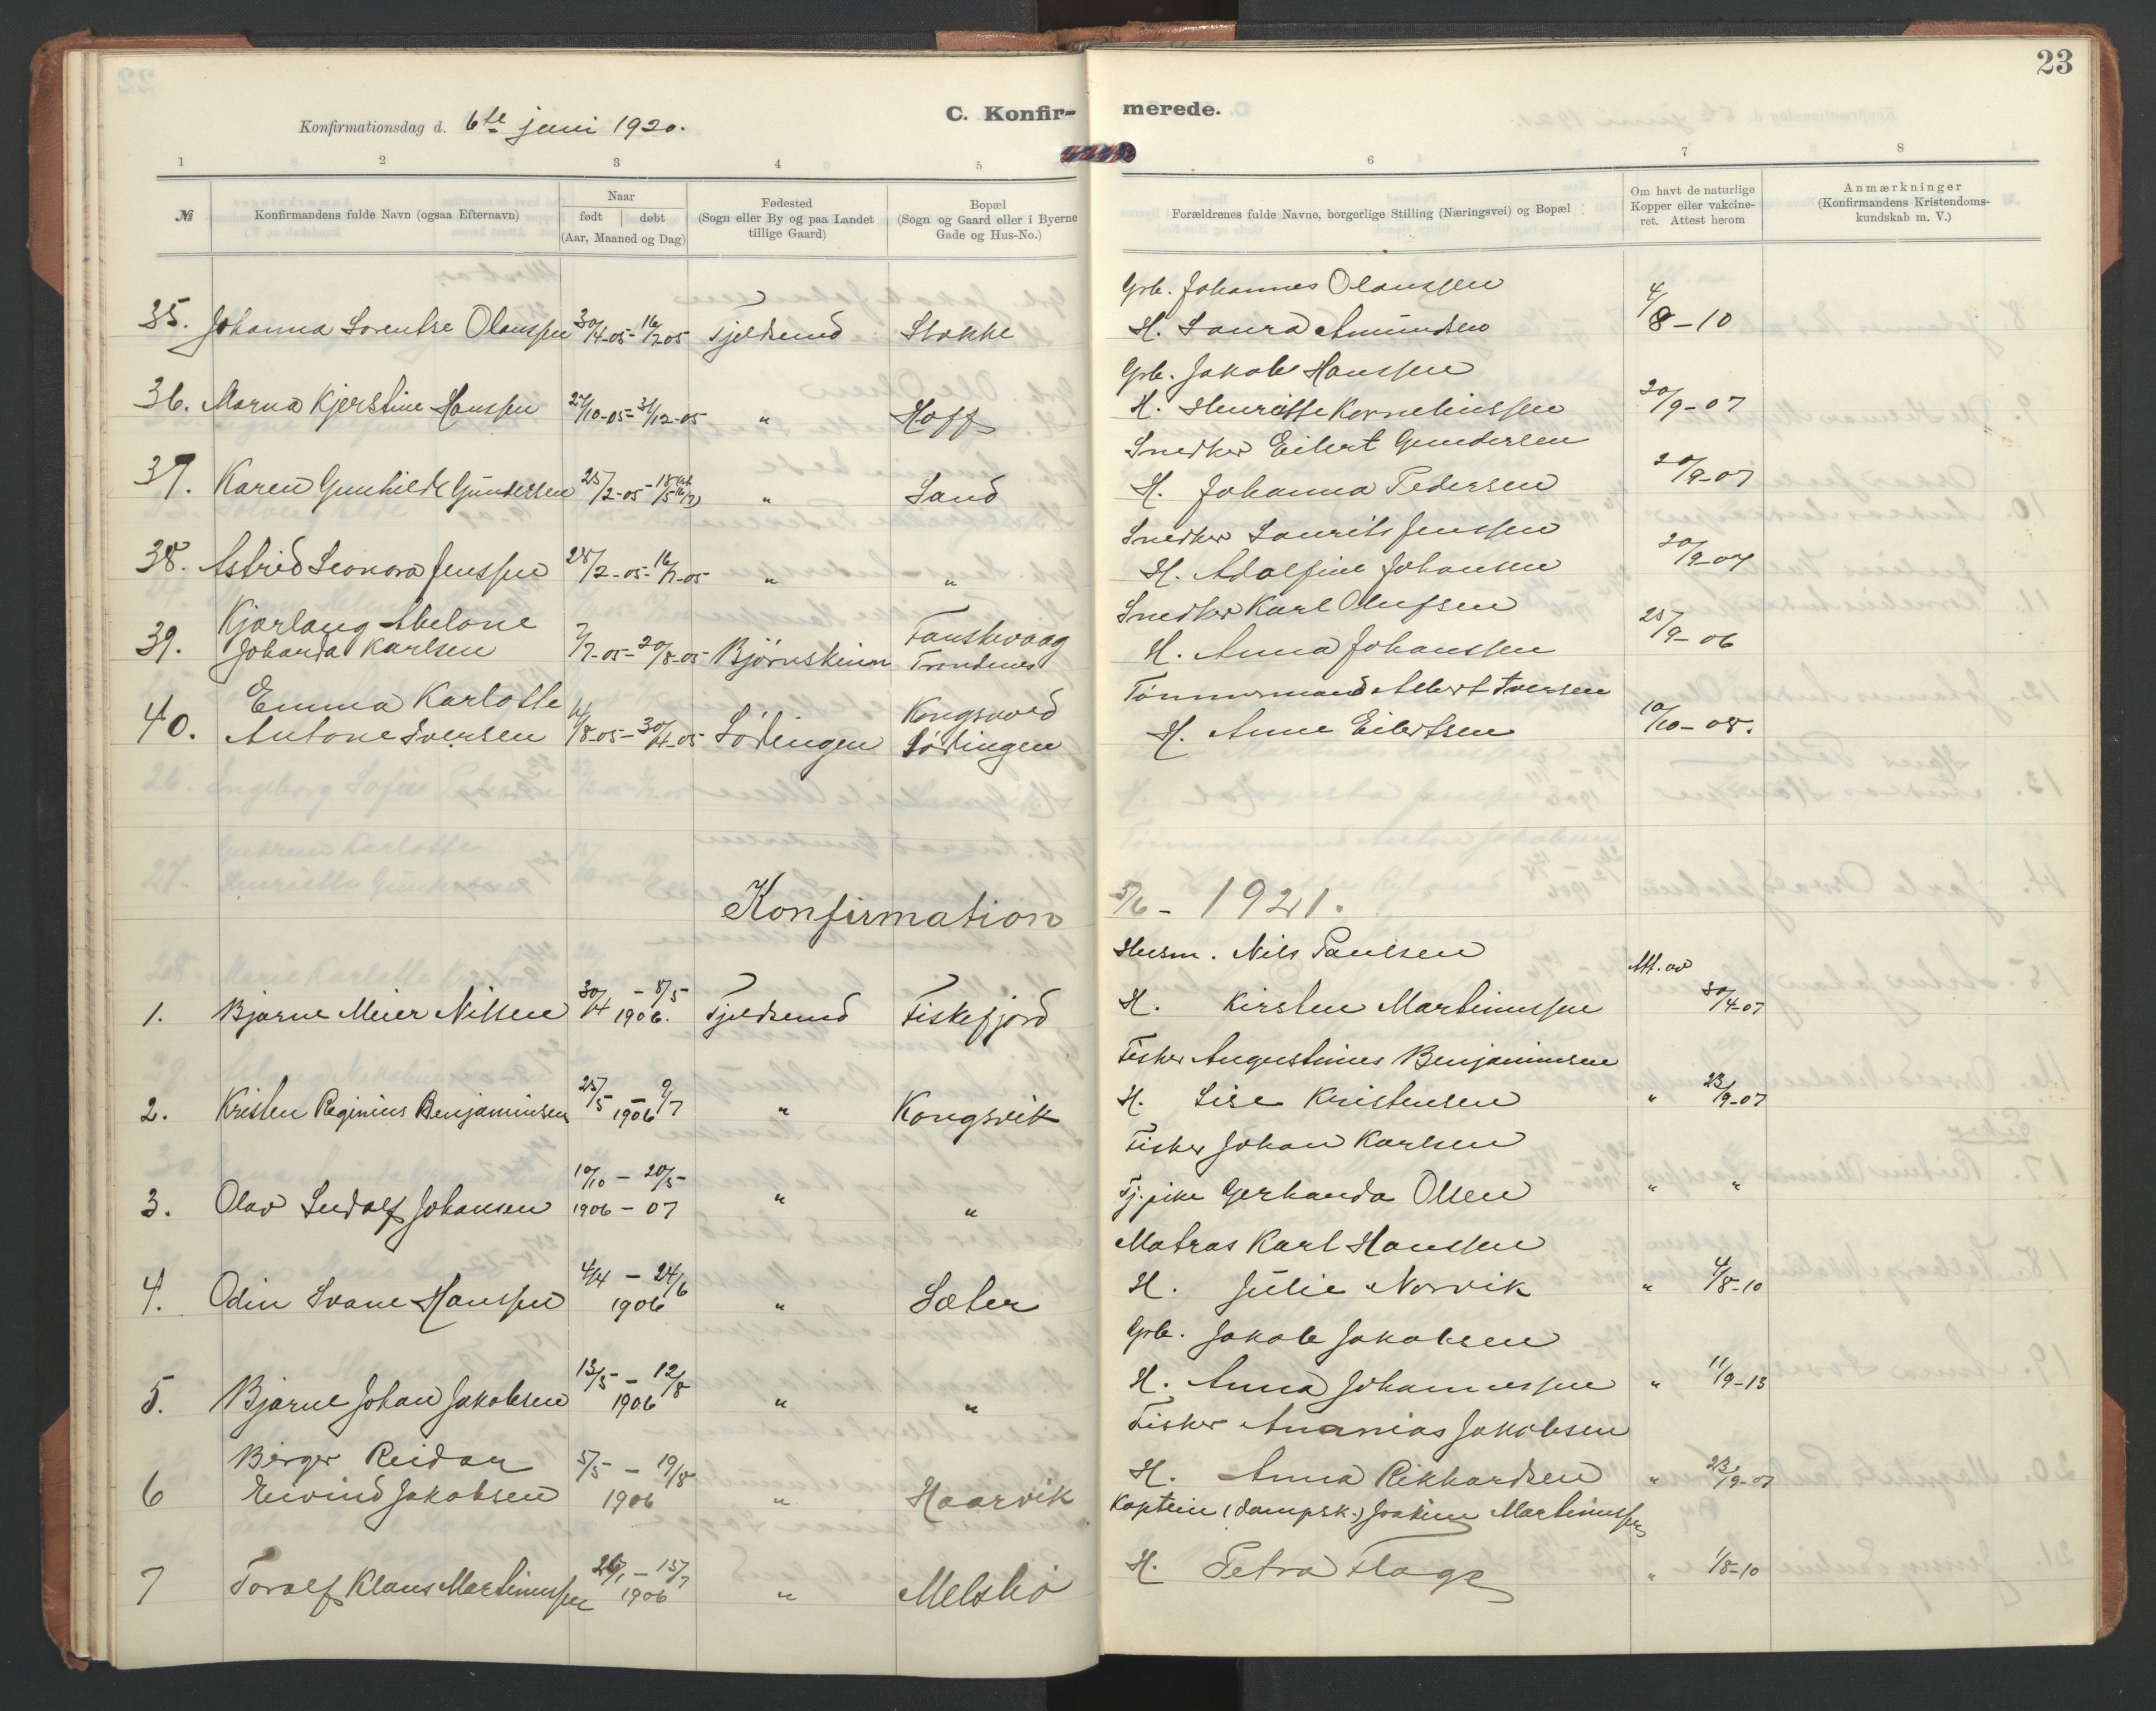 23
C. Konfir-
merede.
Konfirmationsdag d. 6te juni 1920.
1 2 3 4 5 6 7 8
№
Konfirmandens fulde Navn (ogsaa Efternavn)
Naar
født døbt
(Aar, Maaned og Dag)
Fødested
(Sogn eller By og paa Landet
tillige Gaard)
Bopæl
(Sogn og Gaard eller i Byerne
Gade og Hus-No.)
Forældrenes fulde Navne, borgerlige Stilling (Næringsvei) og Bopæl
Om havt de naturlige
Kopper eller vakcine-
ret. Attest herom
Anmærkninger
(Konfirmandens Kristendoms-
kundskab m. V.)
Grb. Johannes Olaussen
35. Johanna Lorentse Olaussen 30/4-05 - 16/7 05 Tjeldsund Stokke H. Laura Amundsen 4/8-10
Grb. Jakob Hanssen
36. Marna Kjerstine Hanssen /10-05 - 31/12-05 " Hoff H. Henriette Korneliussen 20/9-07
Snedker Eilert Gundersen
37. Karen Gunhilde Gundersen 25/2-05 - " Sand H. Johanna Pedersen 20/9-07
Snedker Laurits Jenssen
38. Astrid Leonora Jenssen 28/2-05 - 16/7-05 " " H. Adolfine Johansen 20/9-07
Kjærlaug Abelone Snedker Karl Olufsen
39. Johanda Karlsen /7-05 - 20/8-05 Bjørnskinn Fauskevaag Trondenes H. Anna Johanssen 25/9-06
Emma Karlotte Kongsvold Tømmermand Albert Iversen
40. Antone Iversen /8-05 - 30/4-05 Lødingen Lødingen H. Anne Eilertsen 10/10-08.
Konfirmation 5/6 - 1921.
Husm. Nils Paulsen Att. av
1. Bjarne Meier Nilsen 30/4 - 8/5 1906. Tjeldsund Fiskefjord H. Kirsten Martinussen 30/4-07
Fisker Augustinus Benjaminsen
2. Kristen Reginius Benjaminsen 25/5 - 9/7 1906 " Kongsvik H. Lise Kristensen " 23/9-07
Fisker Johan Karlsen
3. Olav Ludolf Johansen 10/10 - 20/5 1906 - 07 " " Tj.pike Gerhanda Olsen " "
Matros Karl Hanssen
4. Odin Svane Hanssen 4/4 - 24/6 1906 " Sæter H. Julie Norvik " 4/8-10
Grb. Jakob Jakobsen
5. Bjarne Johan Jakobsen 13/5 - 12/8 1906 " " H. Anna Johannessen " 11/9-13
Birger Reidar Fisker Ananias Jakobsen
6 Eivind Jakobsen 5/5 - 19/8 1906 " Haarvik H. Anna Rikhardsen " 23/9-07
Kaptein (dampsk.) Joakim Martinussen
7 Toralf Klaus Martinussen 26/1 - 15/7 1906 " Melskø H. Petra Flage " 1/8-10